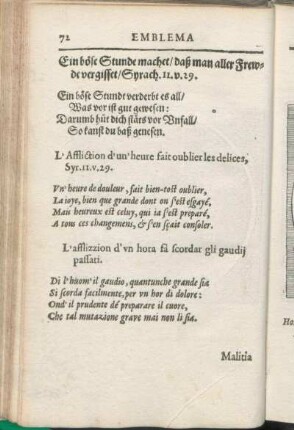 72 EMBLEMA
Ein böse Stunde machet/ daß man aller Frew-
de vergisset/ Syrach. 11. v. 29.
Ein böse Stundt verderbt es all/
Was vor ist gut gewesen:
Darumb hüt dich stäts vor Vnfall/
So kanst du baß genesen.
L'Affliction d'un'heure fait oublier les delices,
Syr. 11. v. 29.
Vn'heure de douleur, fait bien-tost oublier,
La ioye, bien que grande dont on s'est esgayé,
Mais heureux est celuy, qui ia s'est preparé,
A tous ces changemens, & s'en sçait consoler.
L'afflizzion d'vn hora fà scordar gli gaudij
passati.
Di l'huom'il gaudio, quantunche grande sia
Si scorda facilmente, per vn hor di dolore:
Ond'il prudente dé preparare il cuore,
Che tal mutazione grave mai non li sia.
Malitia